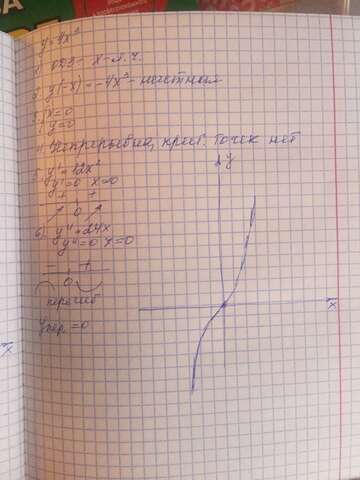 y=4x³
1. ОДЗ - x - л. ч.
2. y(-x) = -4x³ - нечетная
3. x=0
y=0
4. Непрерывна, крит. точек нет
5. y' = 12x²
y'=0 x=0
+ +
0
6. y''=24x
y''=0 x=0
- +
0
перегиб
yпер. =0
y
x
x